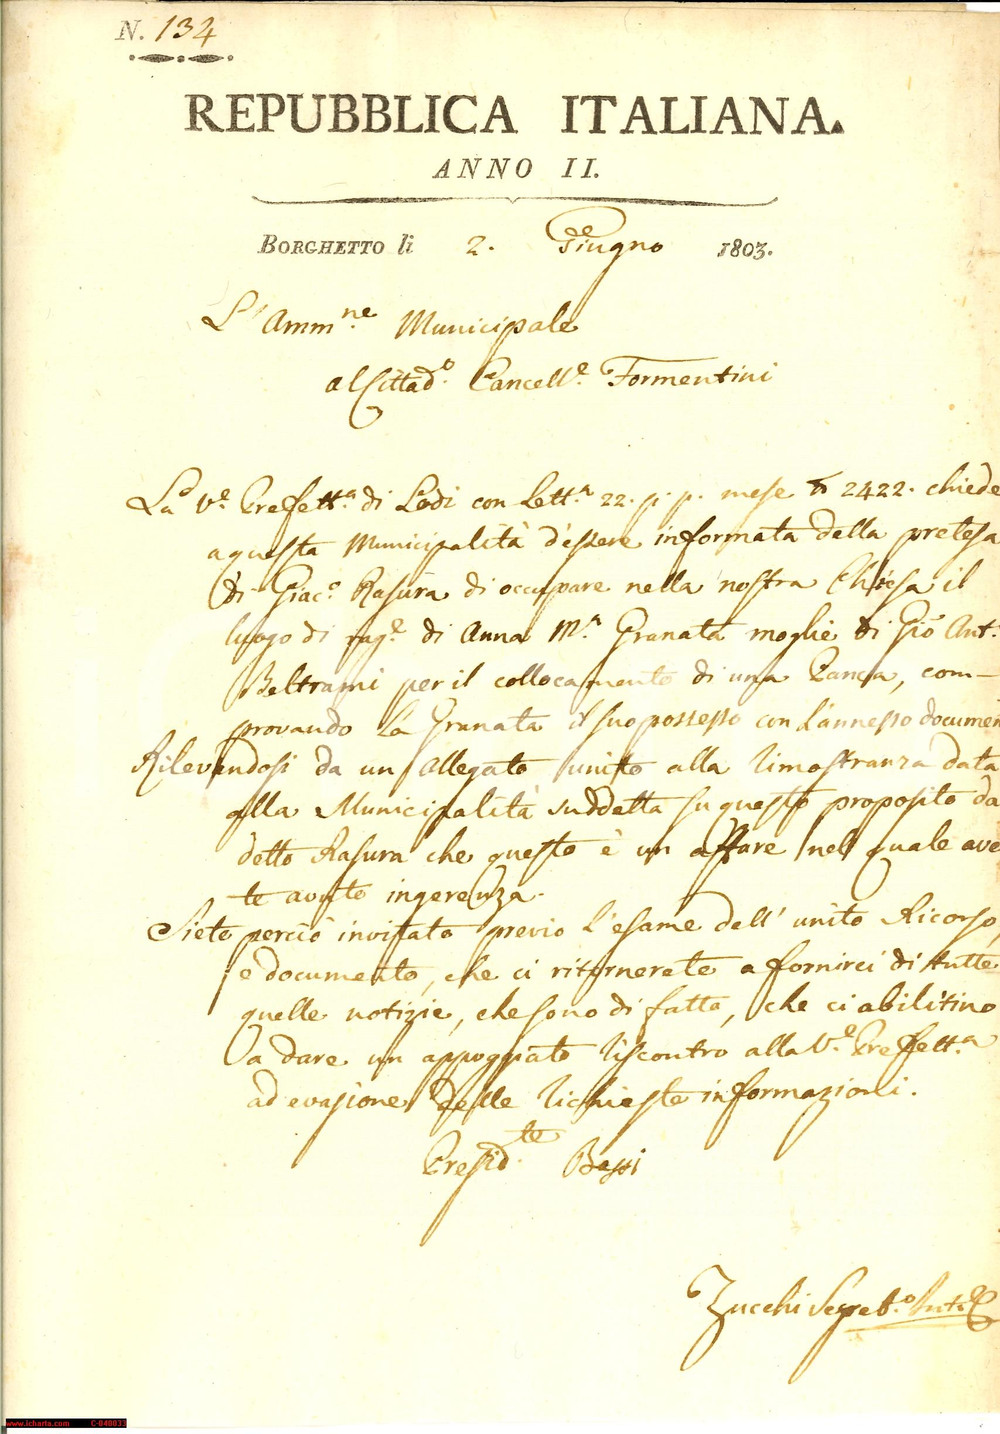 N. 134
REPUBBLICA ITALIANA.
ANNO II.
BORGHETTO li 2. Giugno 1803.
L'Ammne. Municipale
al Cittado. Cancelle. Formentini
La Ve. Prefetta. di Lodi con Letta. 22. p. p. mese N 2422. chiede
a questa Municipalità d'essere informata della pretesa
di Giaco. Rasura di occupare nella nostra Chiesa il
luogo di rage. di Anna Ma. Granata moglie di Gio Ant.
Beltrami per il collocamento di una Panca, com-
provando la Granata il suo possesso con l'annesso documen
Rilevandosi da un allegato unito alla rimostranza data
alla Municipalità suddetta su questo proposito da
detto Rasura che questo è un affare nel quale ave
te avuto ingerenza.
Siete perciò invitato previo l'esame dell'unito Ricorso,
e documento, che ci ritornerete a fornirci di tutte
quelle notizie, che sono di fatto, che ci abilitino
a dare un appoggiato riscontro alla Ve. Prefetta.
ad evasione delle richieste informazioni.
Presidte. Bassi
Zucchi Segreto.
www.icharta.com C-040033